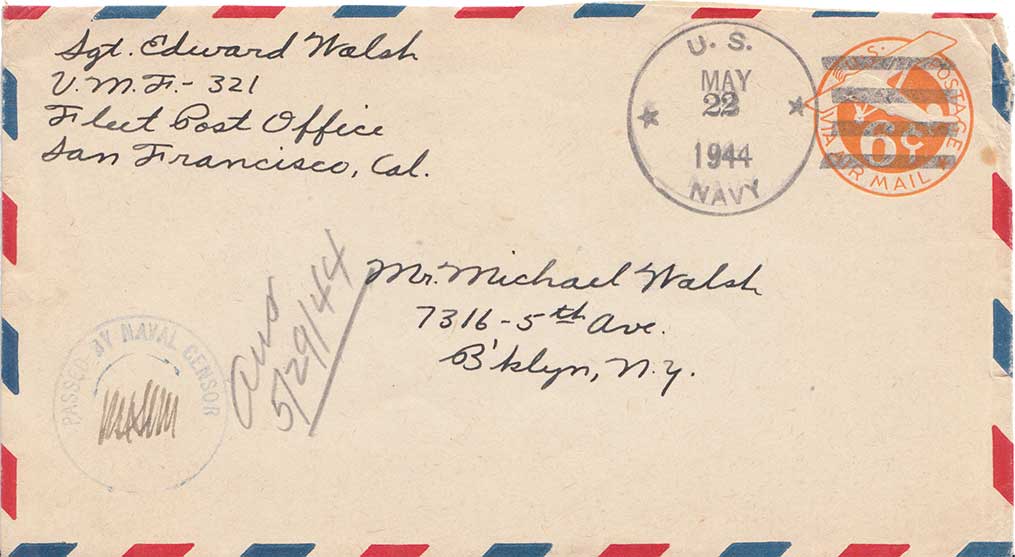 Sgt. Edward Walsh
V.M.F.- 321
Fleet Post Office
San Francisco, Cal.
U. S.
MAY
22
1944
NAVY
U.S. POSTAGE
6¢
VIA AIR MAIL
Mr. Michael Walsh
7316-5th Ave.
B'klyn, N.Y.
5/29/44
PASSED BY NAVAL CENSOR